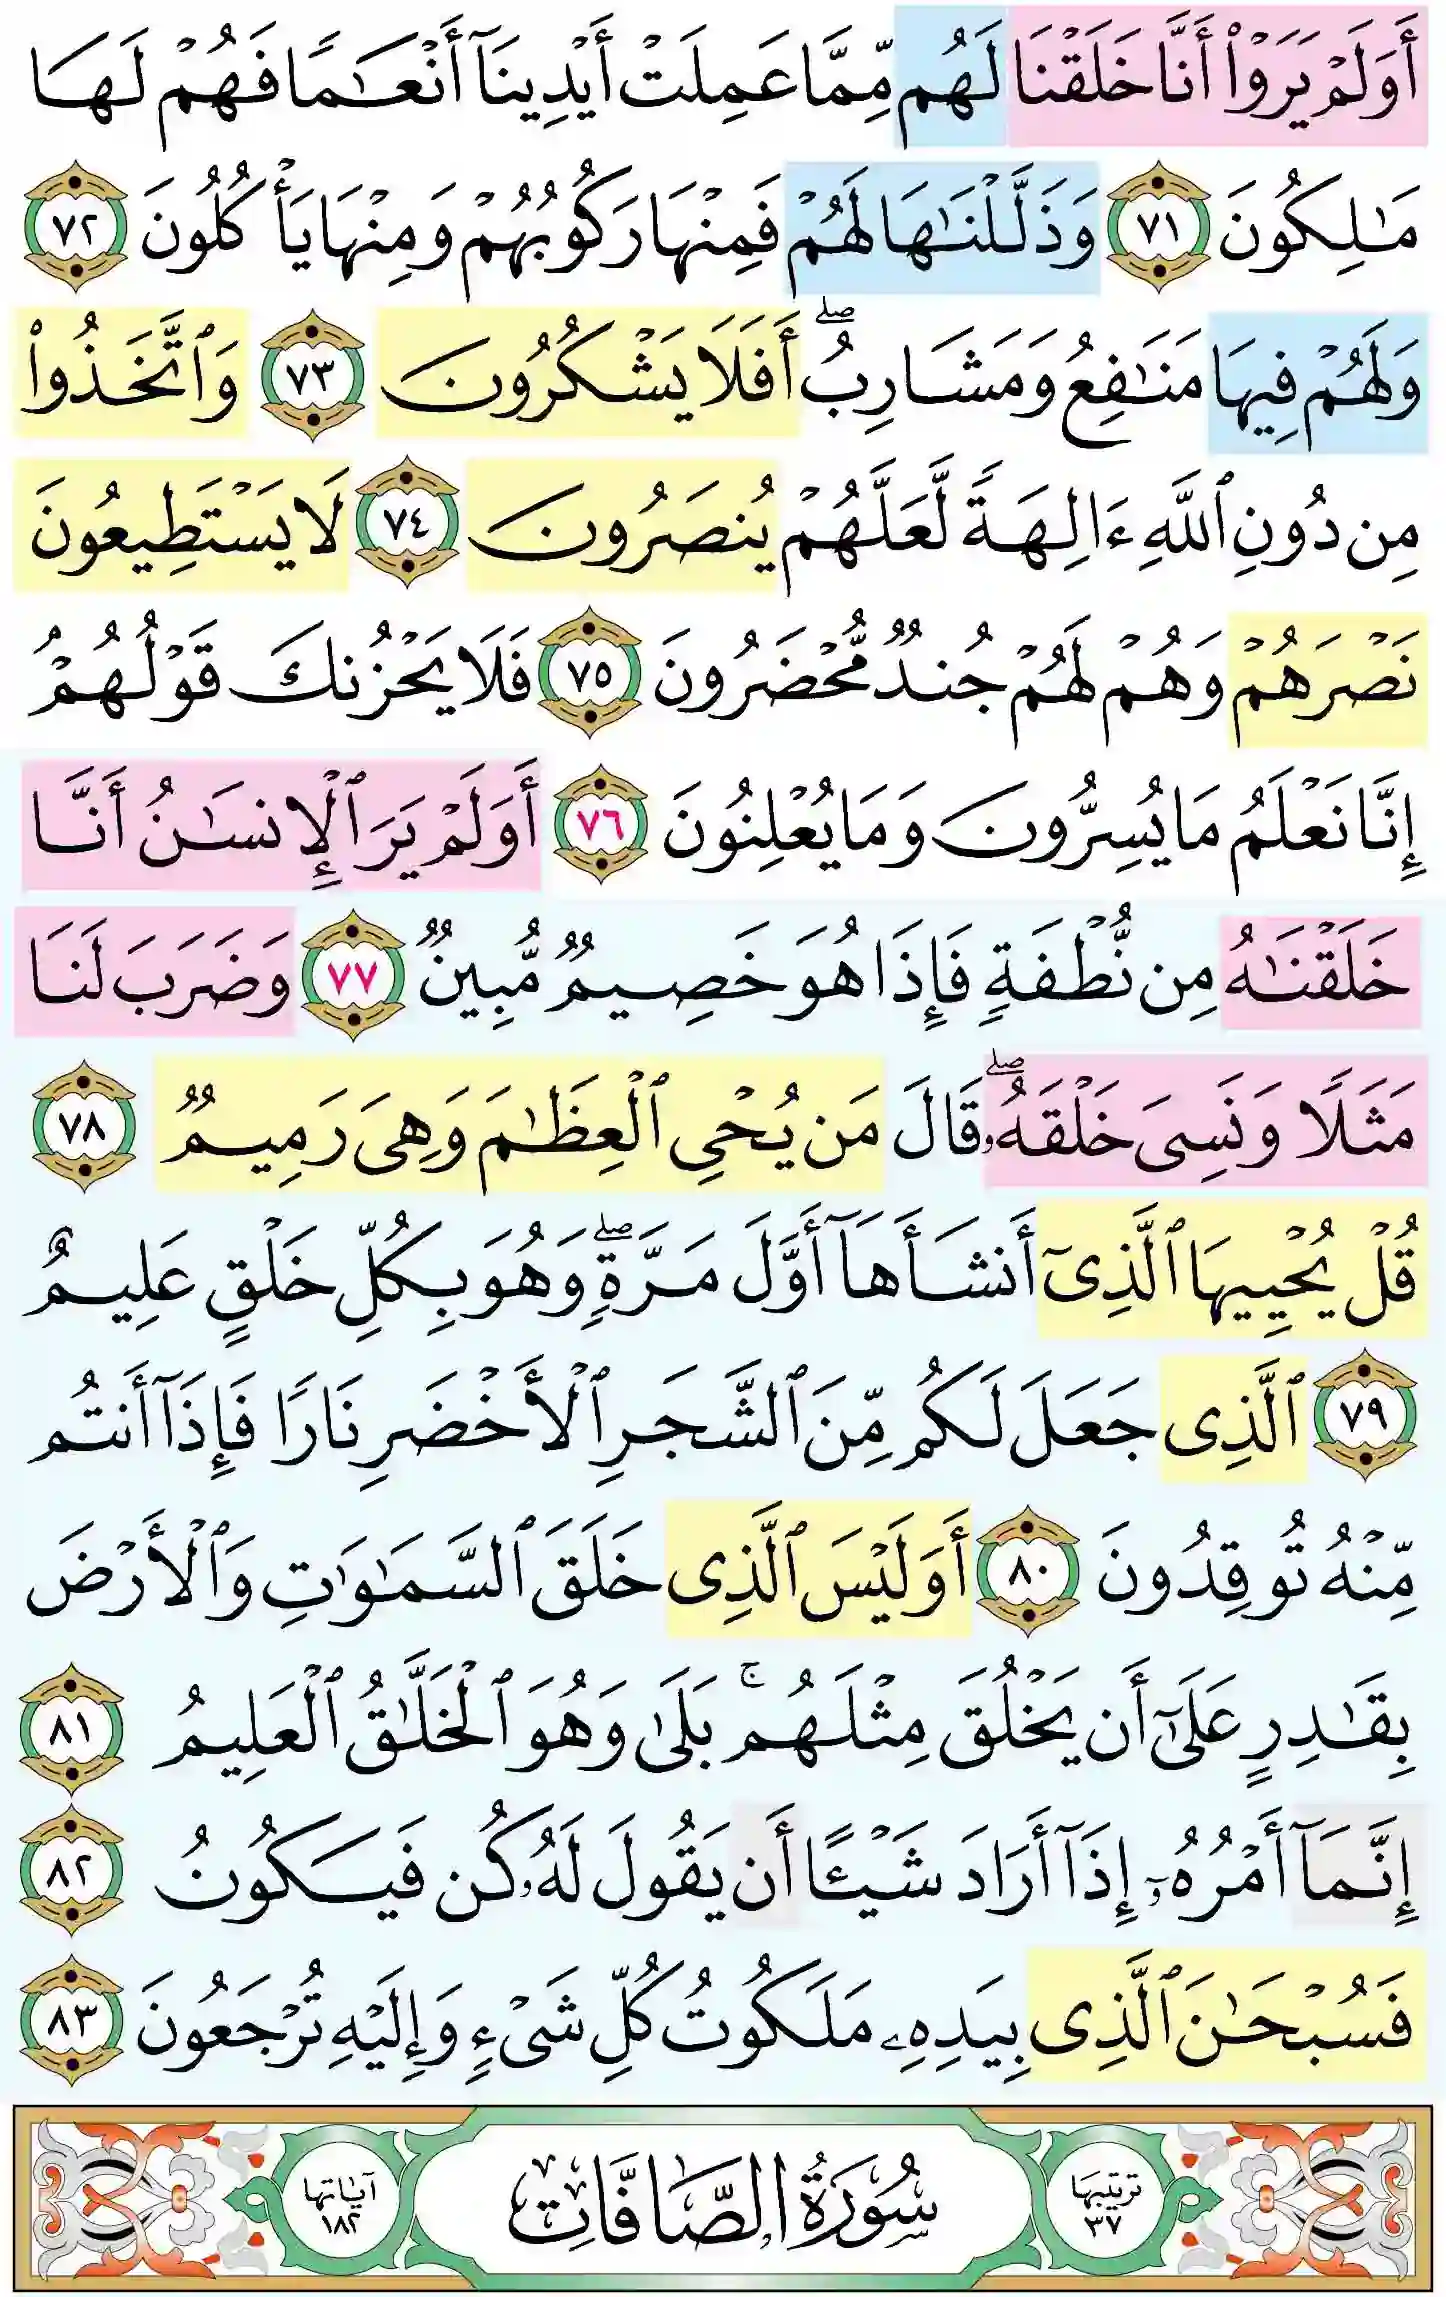 أَوَلَمْ يَرَوْا۟ أَنَّا خَلَقْنَا لَهُم مِّمَّا عَمِلَتْ أَيْدِينَآ أَنْعَـٰمًا فَهُمْ لَهَا
مَـٰلِكُونَ ٧١ وَذَلَّلْنَـٰهَا لَهُمْ فَمِنْهَا رَكُوبُهُمْ وَمِنْهَا يَأْكُلُونَ ٧٢
وَلَهُمْ فِيهَا مَنَـٰفِعُ وَمَشَارِبُ ۖ أَفَلَا يَشْكُرُونَ ٧٣ وَٱتَّخَذُوا۟
مِن دُونِ ٱللَّهِ ءَالِهَةً لَّعَلَّهُمْ يُنصَرُونَ ٧٤ لَا يَسْتَطِيعُونَ
نَصْرَهُمْ وَهُمْ لَهُمْ جُندٌ مُّحْضَرُونَ ٧٥ فَلَا يَحْزُنكَ قَوْلُهُمْ
إِنَّا نَعْلَمُ مَا يُسِرُّونَ وَمَا يُعْلِنُونَ ٧٦ أَوَلَمْ يَرَ ٱلْإِنسَـٰنُ أَنَّا
خَلَقْنَـٰهُ مِن نُّطْفَةٍ فَإِذَا هُوَ خَصِيمٌ مُّبِينٌ ٧٧ وَضَرَبَ لَنَا
مَثَلًا وَنَسِىَ خَلْقَهُۥ ۖ قَالَ مَن يُحْىِ ٱلْعِظَـٰمَ وَهِىَ رَمِيمٌ ٧٨
قُلْ يُحْيِيهَا ٱلَّذِىٓ أَنشَأَهَآ أَوَّلَ مَرَّةٍ ۖ وَهُوَ بِكُلِّ خَلْقٍ عَلِيمٌ
٧٩ ٱلَّذِى جَعَلَ لَكُم مِّنَ ٱلشَّجَرِ ٱلْأَخْضَرِ نَارًا فَإِذَآ أَنتُم
مِّنْهُ تُوقِدُونَ ٨٠ أَوَلَيْسَ ٱلَّذِى خَلَقَ ٱلسَّمَـٰوَٰتِ وَٱلْأَرْضَ
بِقَـٰدِرٍ عَلَىٰٓ أَن يَخْلُقَ مِثْلَهُم ۚ بَلَىٰ وَهُوَ ٱلْخَلَّـٰقُ ٱلْعَلِيمُ ٨١
إِنَّمَآ أَمْرُهُۥٓ إِذَآ أَرَادَ شَيْـًٔا أَن يَقُولَ لَهُۥ كُن فَيَكُونُ ٨٢
فَسُبْحَـٰنَ ٱلَّذِى بِيَدِهِۦ مَلَكُوتُ كُلِّ شَىْءٍ وَإِلَيْهِ تُرْجَعُونَ ٨٣
ترتيبها
٣٧
سُورَةُ الصَّافَّاتِ
آياتها
١٨٢